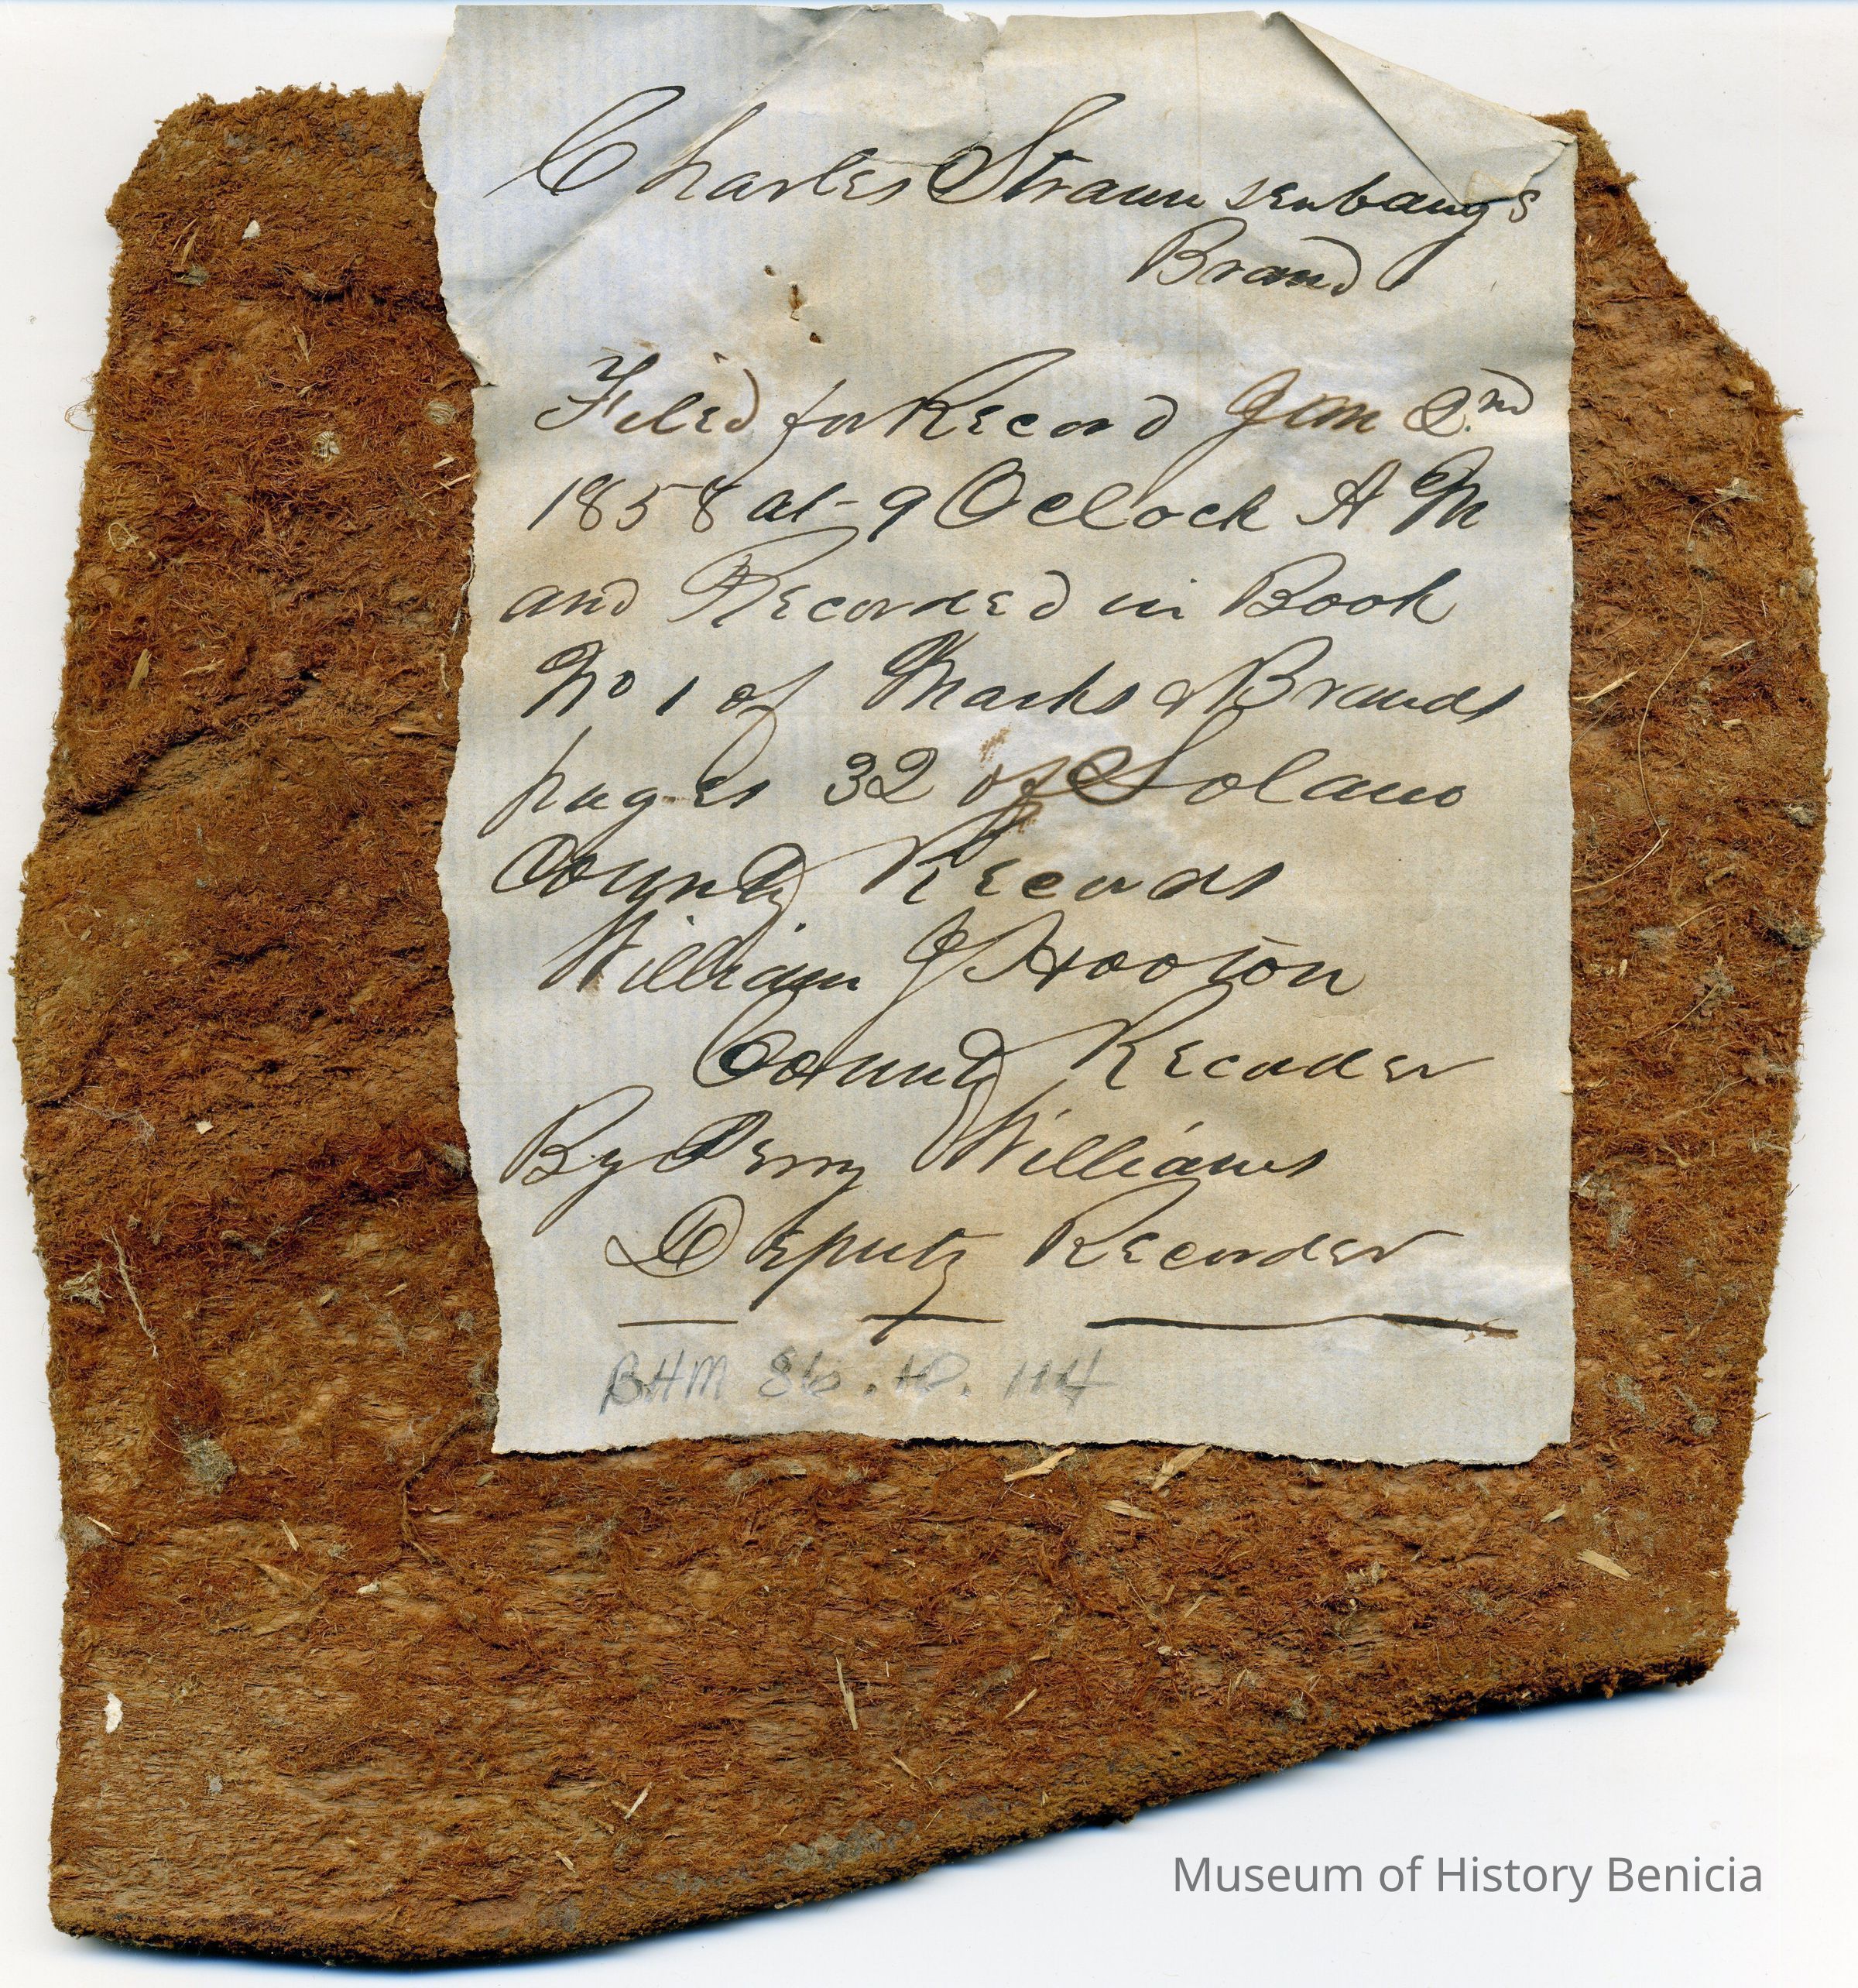 Charles Straunsenbaugs
Brand
Filed for Record Jan 2nd
1858 at 9 OClock A M
and Recorded in Book
No 1 of Marks & Brands
pages 32 of Solano
County Records
William J Hooton
County Recorder
By Perry Williams
Deputy Recorder
BHM 86.10.114
Museum of History Benicia